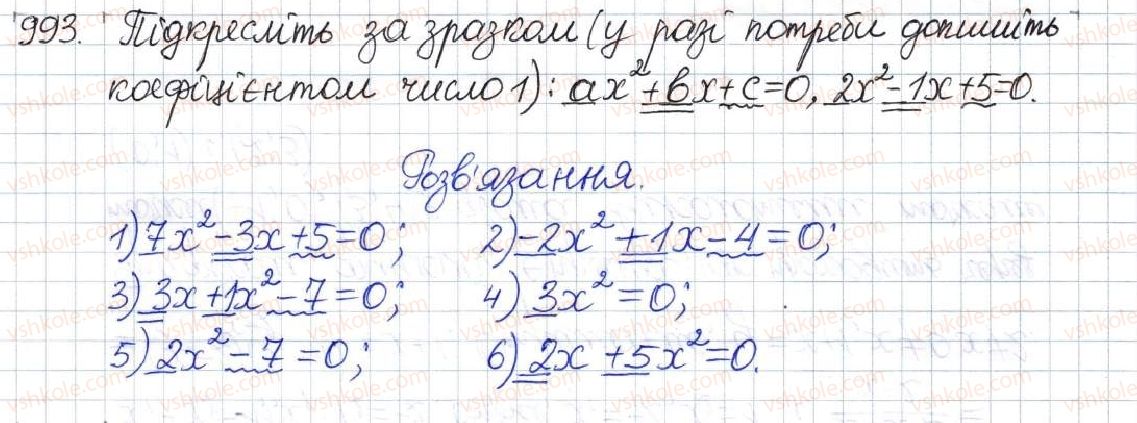 993. Підкресліть за зразком (у разі потреби допишіть
коефіцієнтом число 1): ax²+bx+c=0, 2x²-1x+5=0.
Розв'язання.
1) 7x²-3x+5=0; 2) -2x²+1x-4=0;
3) 3x+1x²-7=0; 4) 3x²=0;
5) 2x²-7=0; 6) 2x+5x²=0.